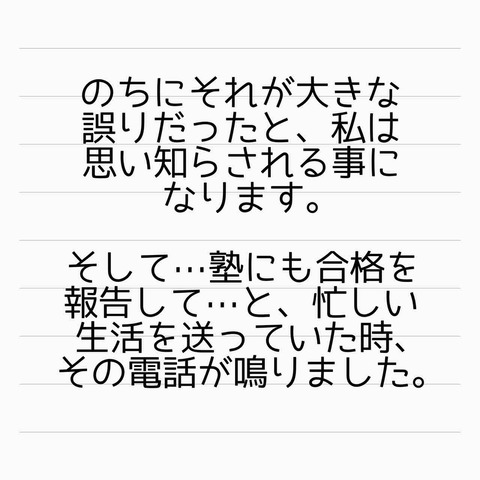 のちにそれが大きな
誤りだったと、私は
思い知らされる事に
なります。
そして…塾にも合格を
報告して…と、忙しい
生活を送っていた時、
その電話が鳴りました。